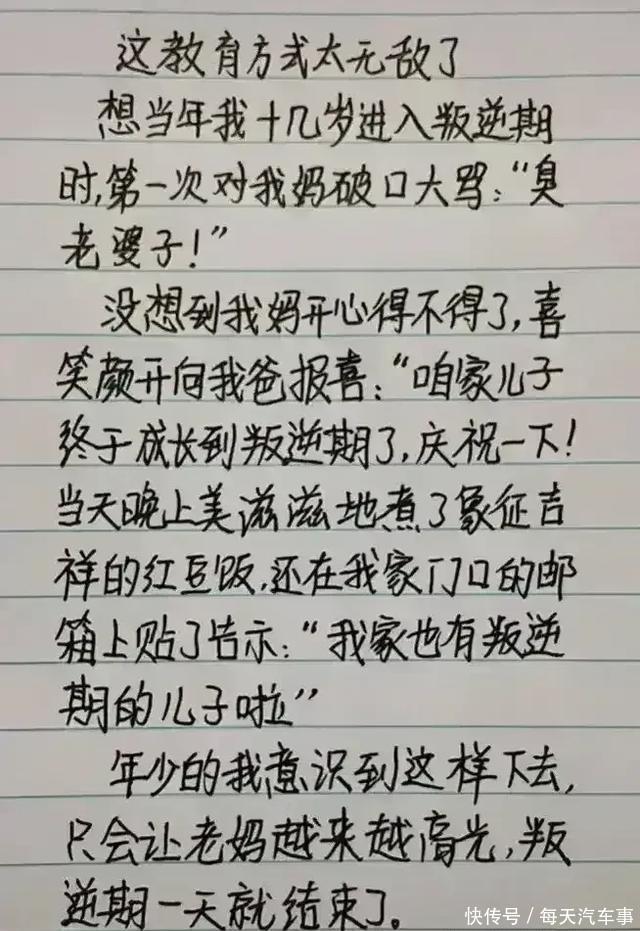 这教育方式太无敌了
想当年我十几岁进入叛逆期
时,第一次对我妈破口大骂:“臭
老婆子!”
没想到我妈开心得不得了,喜
笑颜开向我爸报喜:“咱家儿子
终于成长到叛逆期了,庆祝一下!
当天晚上美滋滋地煮了象征吉
祥的红豆饭,还在我家门口的邮
箱上贴了告示:“我家也有叛逆
期的儿子啦”
年少的我意识到这样下去,
只会让老妈越来越高光,叛
逆期一天就结束了。
快传号/每天汽车事